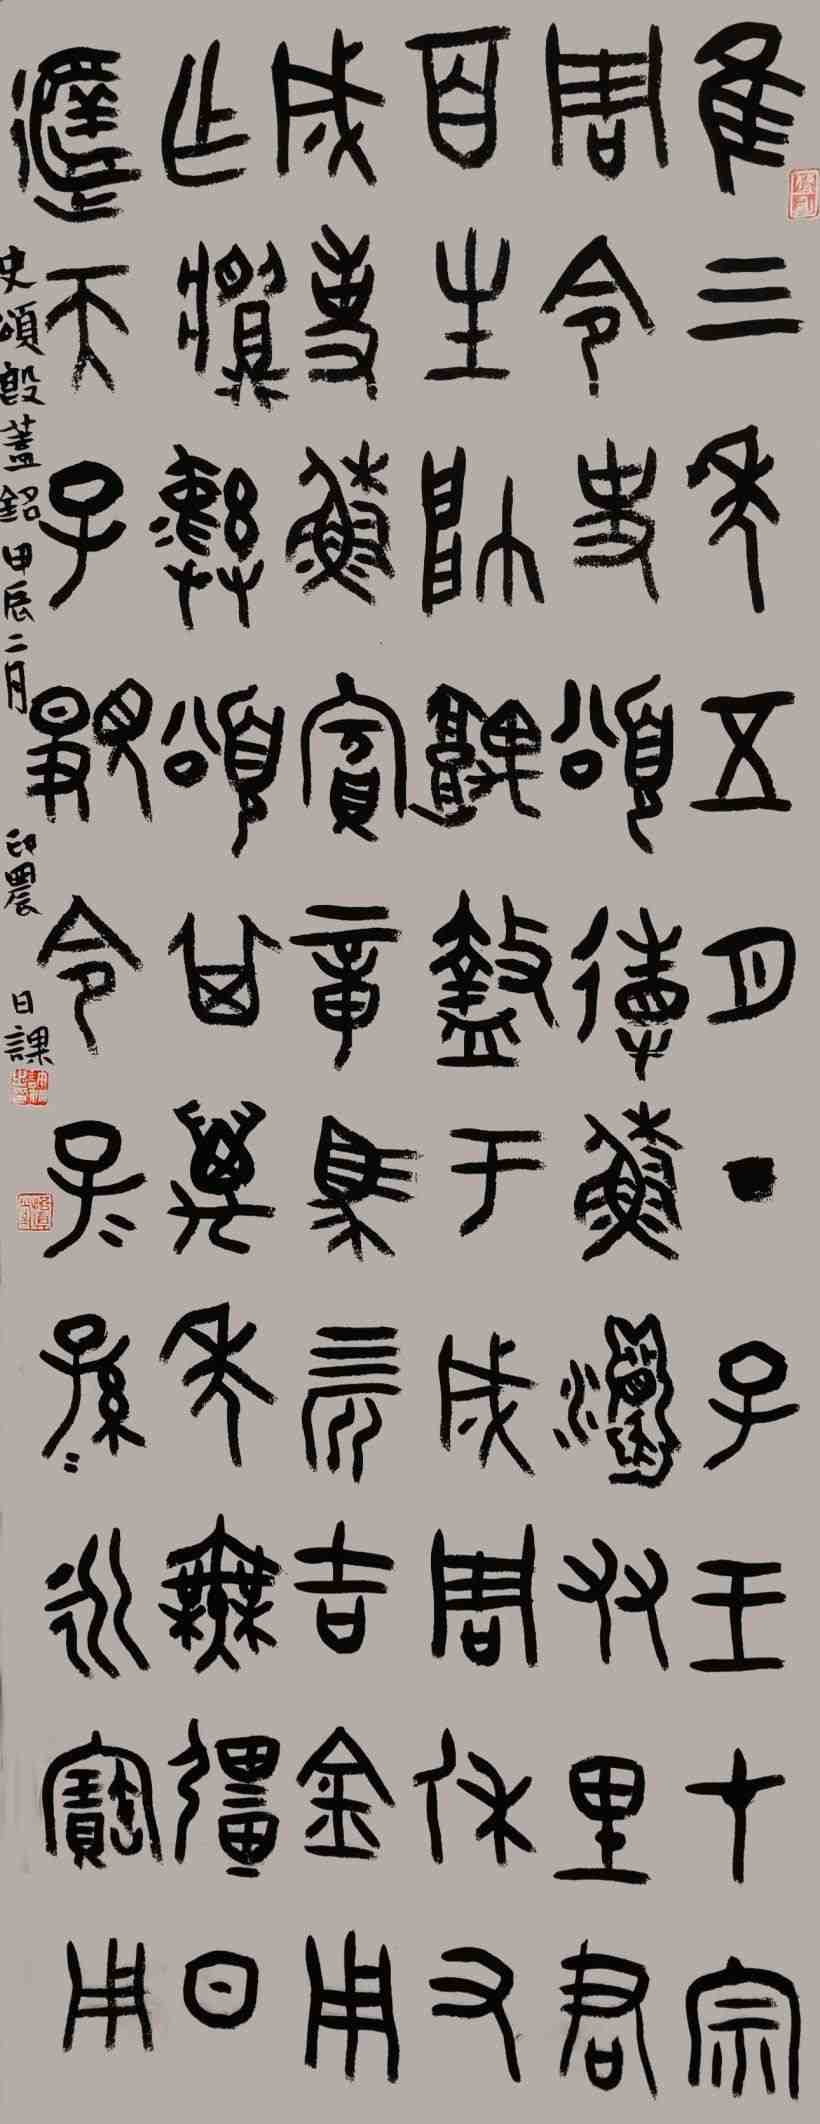 隹三年五月丁子王才宗
周令史頌省蘇友里君
百生帥堣盩于成周休又
成事蘇賓章馬四匹吉金用
乍䵼彝頌其萬年無彊日
遟天子顯令子=孫=永寶用
史頌𣪘蓋銘 甲辰二月 印農 日課